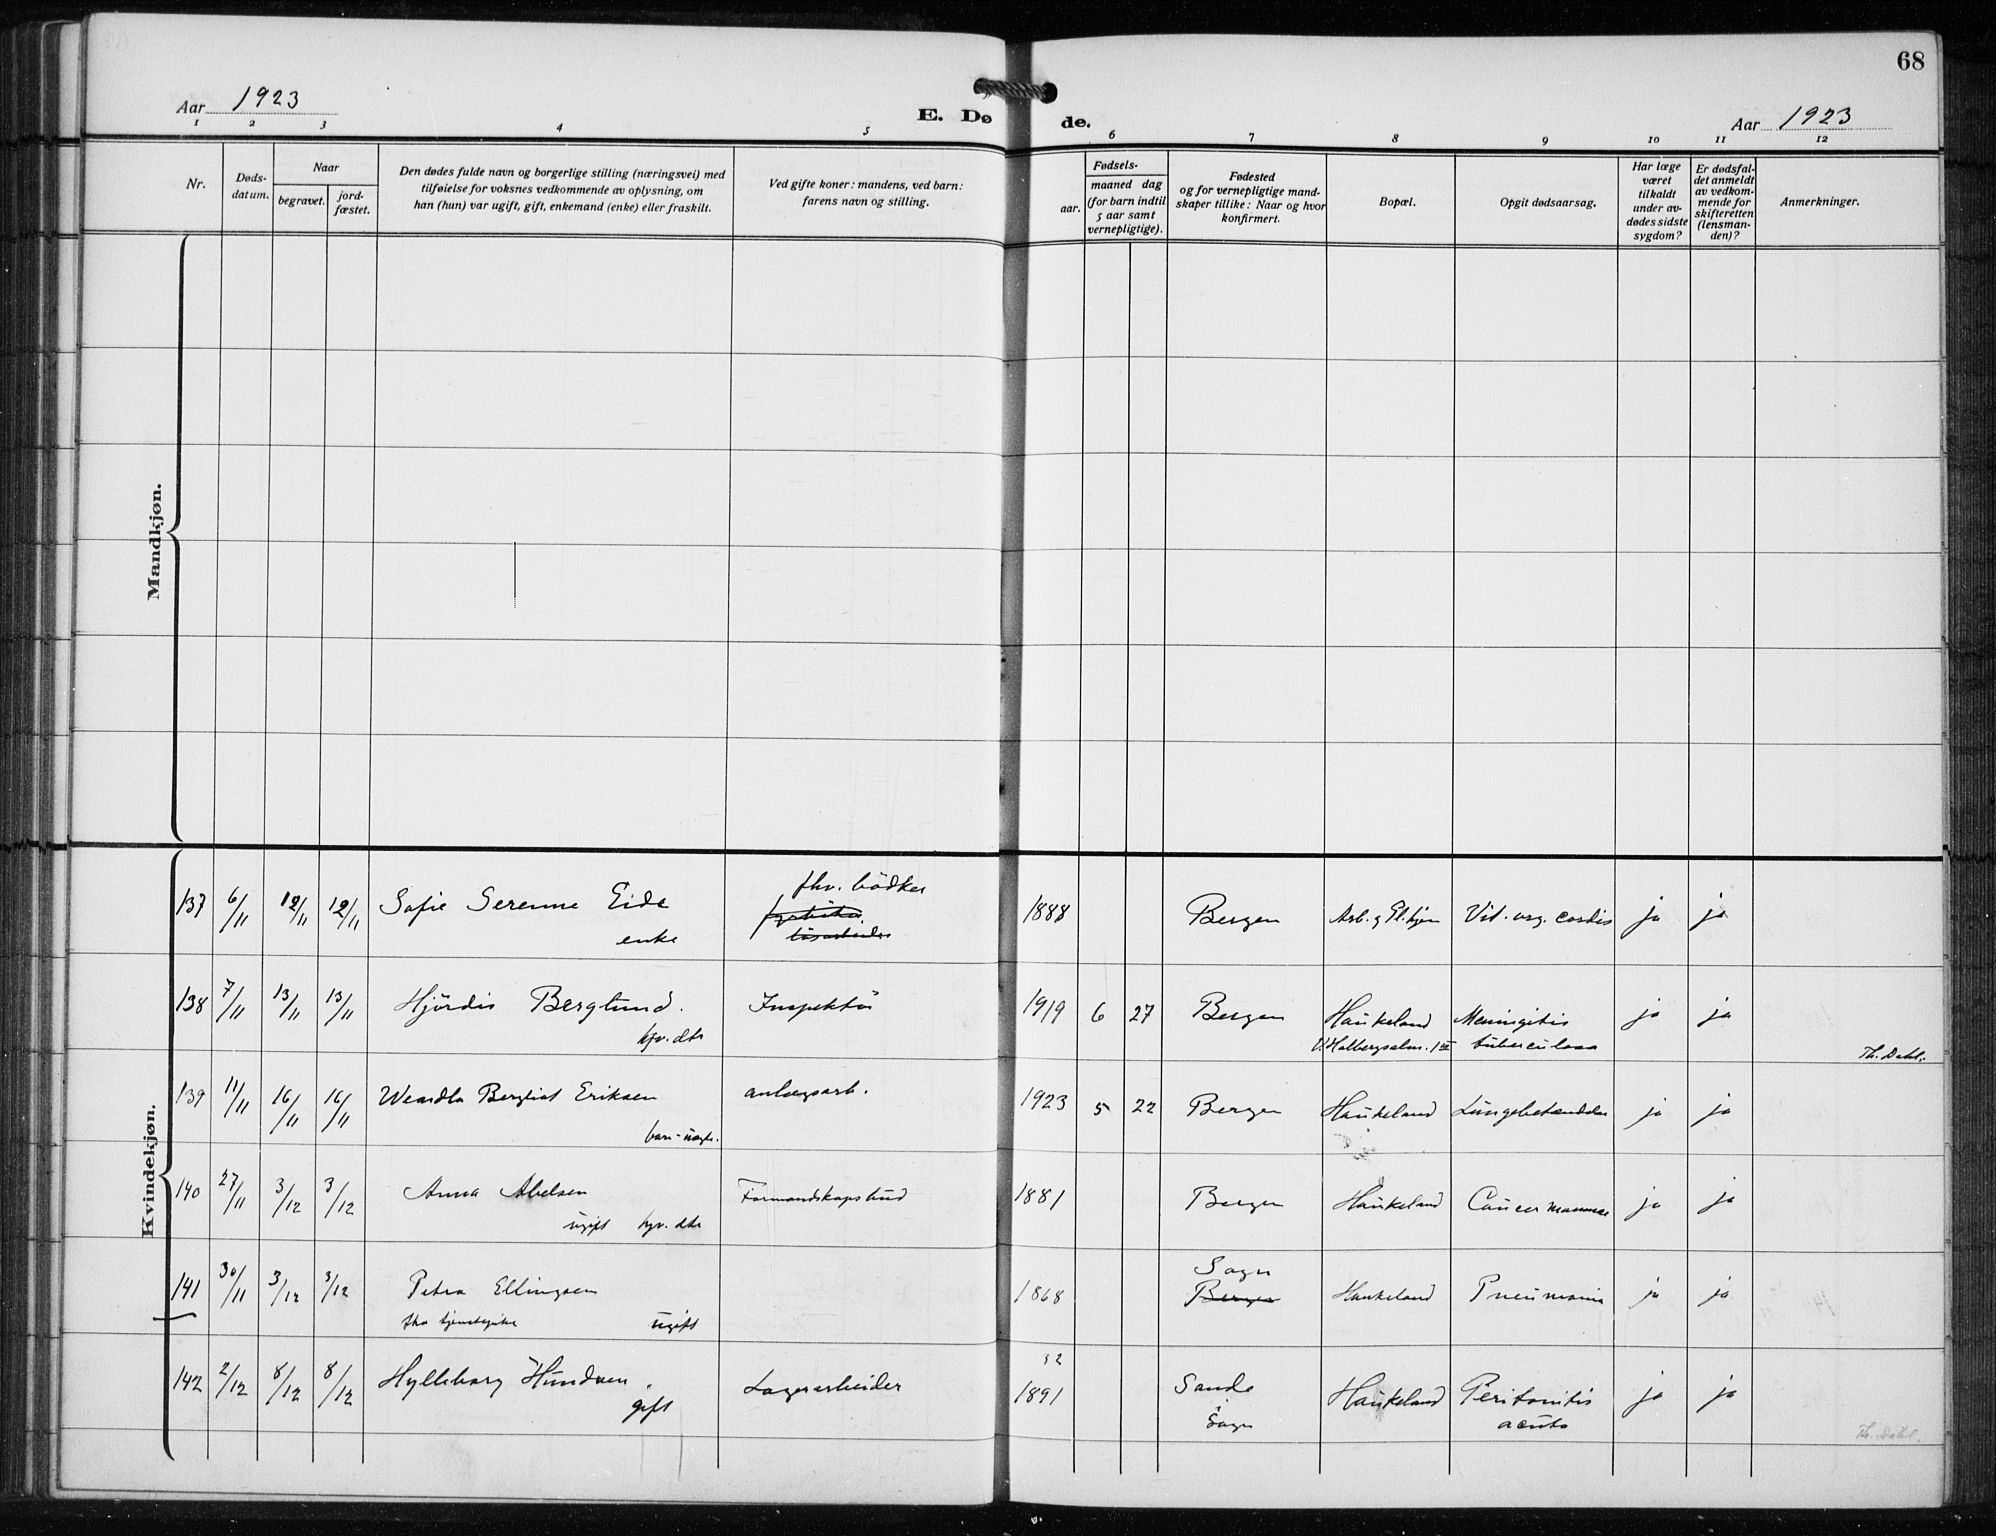 68
Aar 1923
E. Døde.
Aar 1923
1 2 3 4 5 6 7 8 9 10 11 12
Nr.
Døds-
datum.
Naar
begravet.
jord-
fæstet.
Den dødes fulde navn og borgerlige stilling (næringsvei) med
tilføielse for voksnes vedkommende av oplysning, om
han (hun) var ugift, gift, enkemand (enke) eller fraskilt.
Ved gifte koner: mandens, ved barn:
farens navn og stilling.
Fødsels-
aar.
maaned dag
(for barn indtil
5 aar samt
vernepligtige).
Fødested
og for vernepligtige mand-
skaper tillike: Naar og hvor
konfirmert.
Bopæl.
Opgit dødsaarsag.
Har læge
været
tilkaldt
under av-
dødes sidste
sygdom?
Er dødsfal-
det anmeldt
av vedkom-
mende for
skifteretten
(lensman-
den)?
Anmerkninger.
Mandkjøn.
Kvindekjøn.
fhv. bödker
137 6/11 12/11 12/11 Sofie Serenne Eide 1888 Bergen Arb. g Pl.hjem Vit. org. cordis ja ja
enke løsarbeider
138 7/11 13/11 13/11 Hjördis Berglund. Inspektör 1919 6 27 Bergen Haukeland Meningitis ja ja
hjv. dtr Holbergsalm. 1 III tuberculosa Th. Dahl.
139 11/11 16/11 16/11 Bergliot Eriksen anlægsarb. 1923 5 22 Bergen Haukeland Lungebetændelse ja ja
140 27/11 3/12 3/12 Anna Abelsen Formandskapsbud 1881 Bergen Haukeland Cancer mammae ja ja
ugift hjv. dtr
Sogn
141 30/11 3/12 3/12 Petra Ellingsen 1868 Bergen Haukeland Pneumonia ja ja
fhv tjenestepike ugift
142 2/12 8/12 8/12 Hylleborg Hundven. Lagerarbeider 1891 Sande Haukeland Peritonitis ja ja
gift Sogn acuta
Th. Dahl.